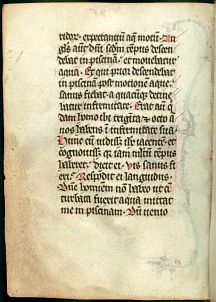 ridor. expectantiū aq̄ motū. An
gl's aut̄ dn̄i scdm̄ tēpus descen
debat in piscinā. et mouebatur
aqua. Et qui prior descendebat
in piscinā post motionem aque.
sanus fiebat. a quacūq; detine
batur infirmitate. Erat aūt q̄
dam homo ibi triginta & octo a
nos habens ī infirmitate sua.
Hunc cū uidiss; ihs iacentē. et
cognouiss; q̄a iam multū tēpus
haberet. dicit ei. Vis sanus fi
eri. Respōdit ei languidus.
Dn̄e hominem nō habeo ut cū
turbata fuerit aqua mittat
me in piscinam. Dū uenio